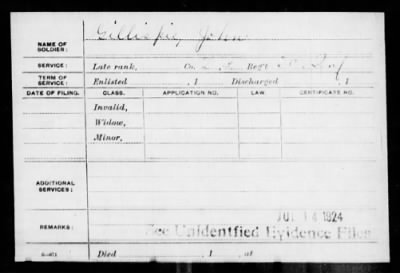 Gillispie, John
NAME OF SOLDIER:
SERVICE: Late rank, Co. Reg't Inf
TERM OF SERVICE: Enlisted , 1 Discharged , 1
DATE OF FILING. CLASS. APPLICATION NO. LAW. CERTIFICATE NO.
Invalid,
Widow,
Minor,
ADDITIONAL SERVICES:
JUL 14 1924
REMARKS: See Unidentfied Evidence Files
Died , 1 , at